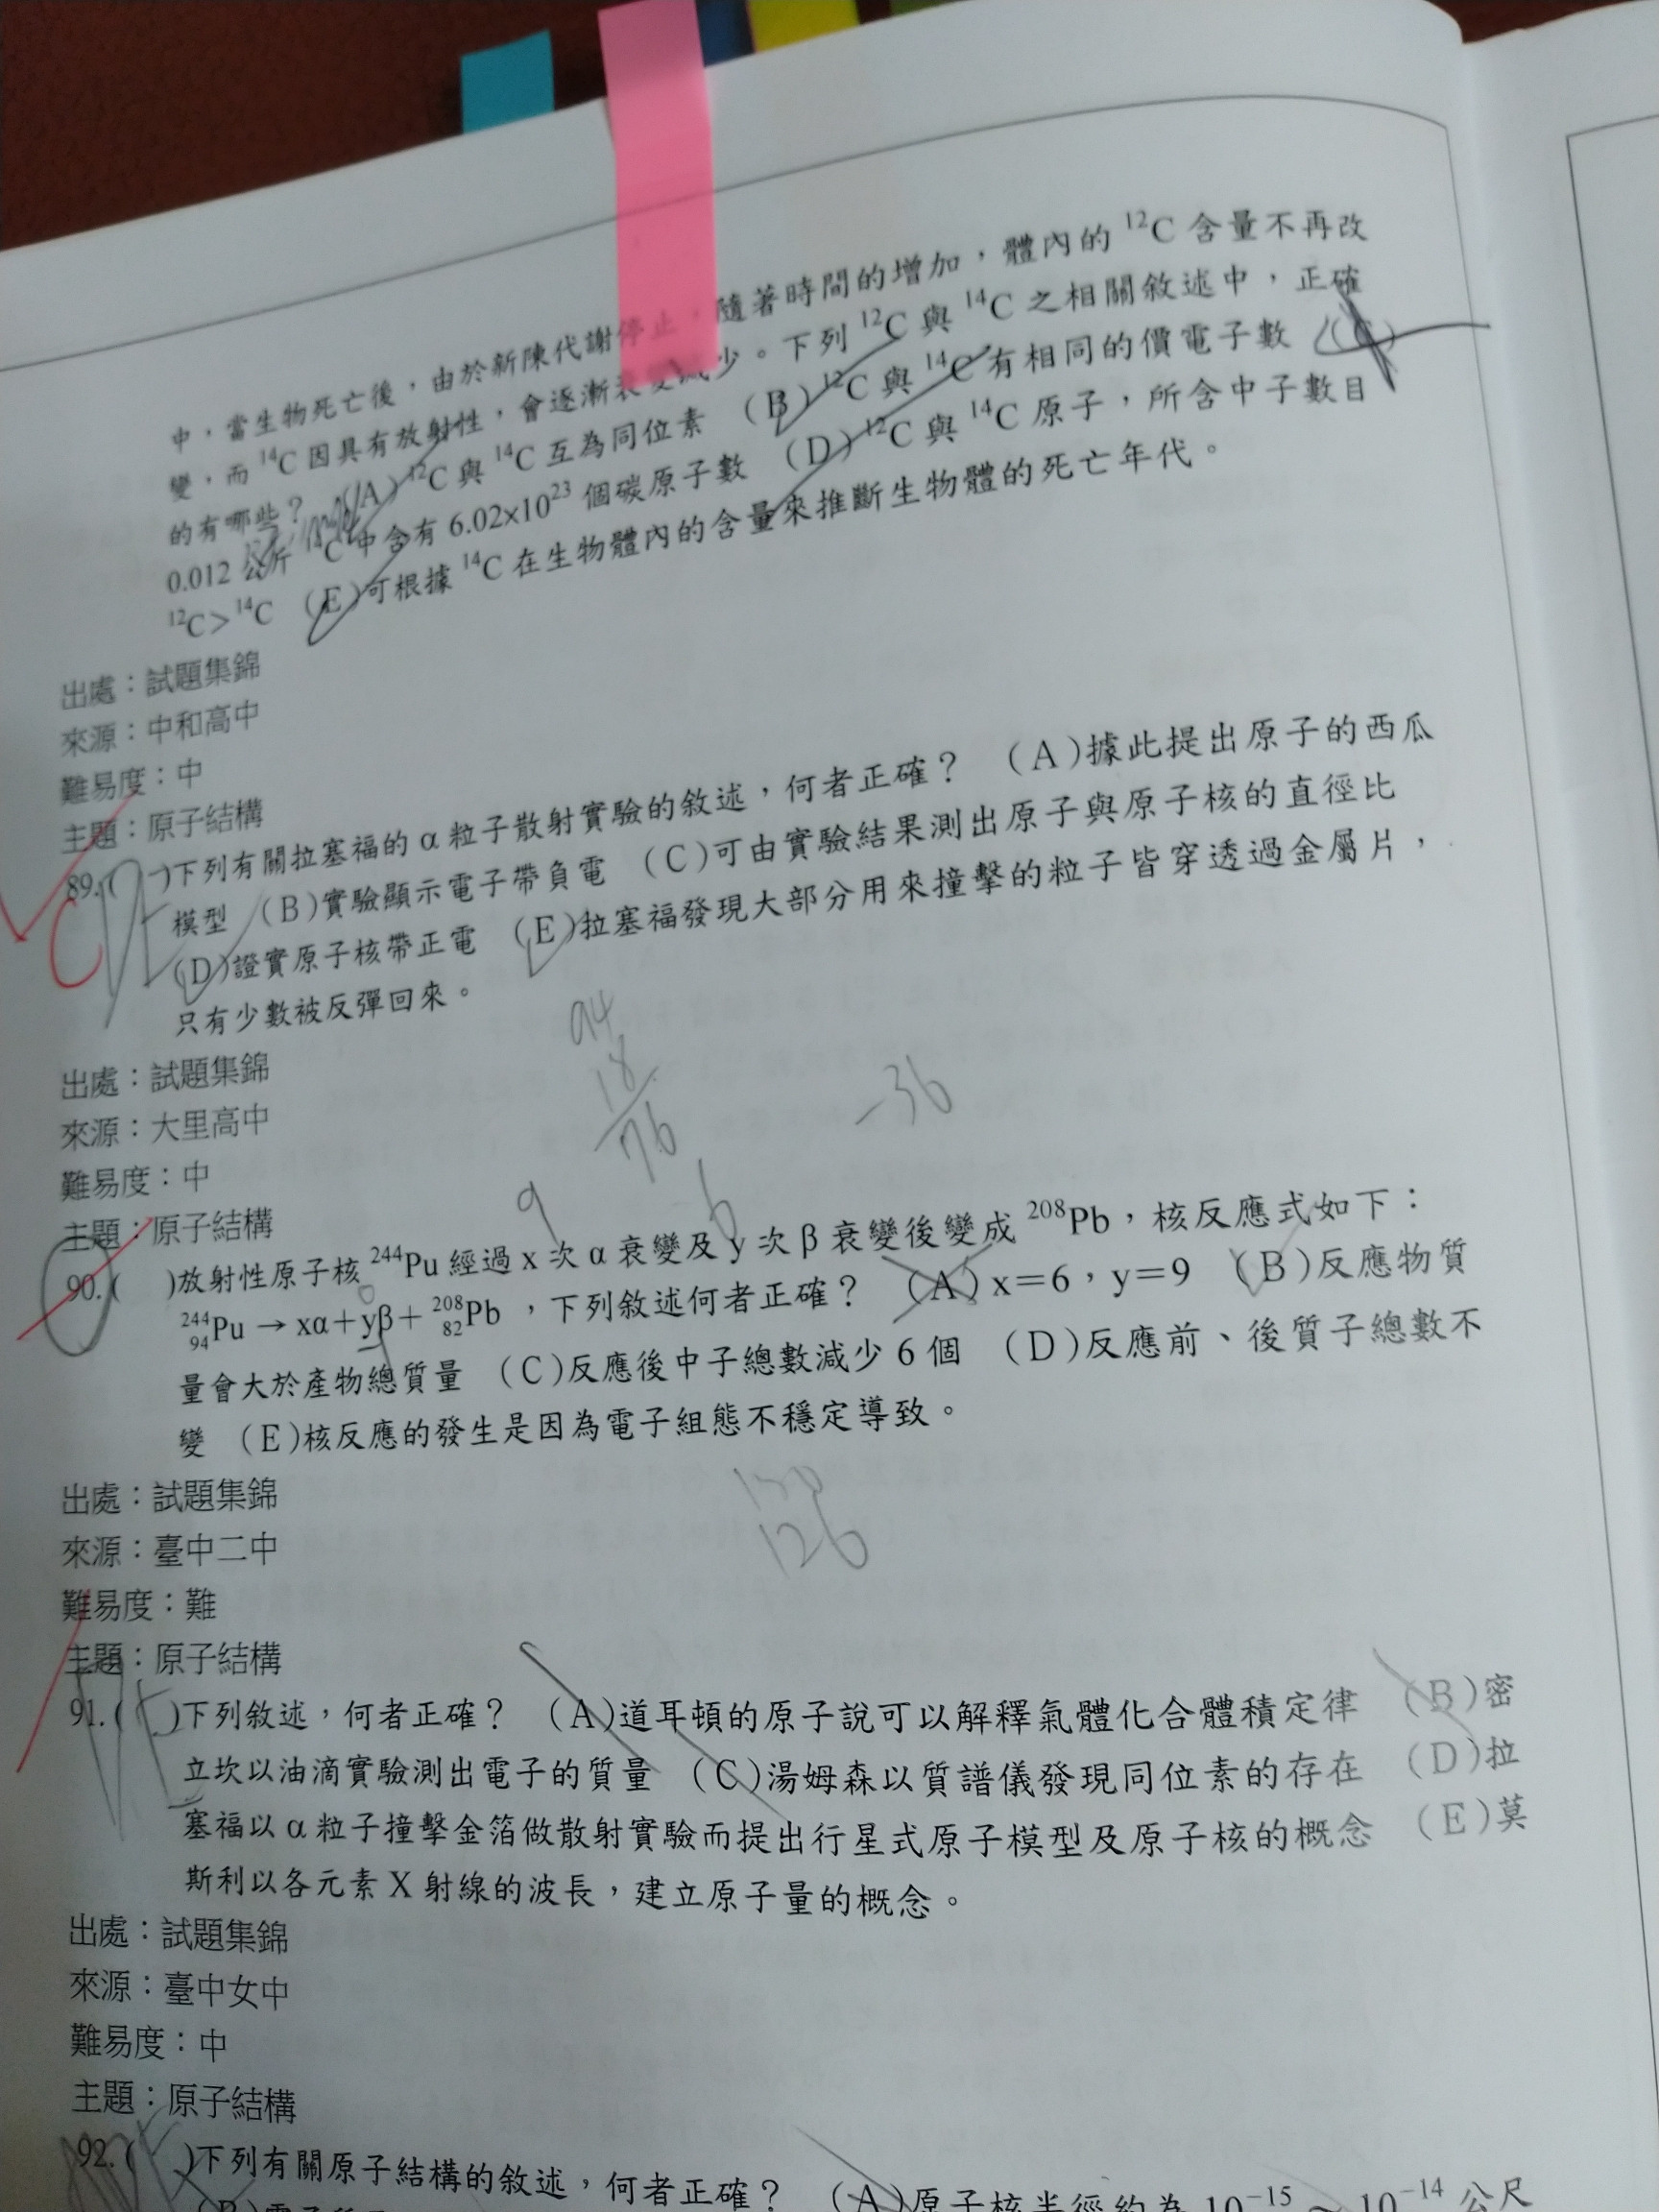 中，當生物死亡後，由於新陳代謝停止，隨著時間的增加，體內的 ¹²C 含量不再改
變，而 ¹⁴C 因具有放射性，會逐漸衰變減少。下列 ¹²C 與 ¹⁴C 之相關敘述中，正確
的有哪些？ (A) ¹²C 與 ¹⁴C 互為同位素 (B) ¹²C 與 ¹⁴C 有相同的價電子數 (C)
0.012 公斤 C 中含有 6.02×10²³ 個碳原子數 (D) ¹²C 與 ¹⁴C 原子，所含中子數目
¹²C＞¹⁴C (E)可根據 ¹⁴C 在生物體內的含量來推斷生物體的死亡年代。
出處：試題集錦
來源：中和高中
難易度：中
主題：原子結構
89.( )下列有關拉塞福的 α 粒子散射實驗的敘述，何者正確？ (A)據此提出原子的西瓜
C
模型 (B)實驗顯示電子帶負電 (C)可由實驗結果測出原子與原子核的直徑比
(D)證實原子核帶正電 (E)拉塞福發現大部分用來撞擊的粒子皆穿透過金屬片，
只有少數被反彈回來。
94
18
76
-36
出處：試題集錦
來源：大里高中
難易度：中
主題：原子結構
9 6
90.( )放射性原子核 ²⁴⁴Pu 經過 x 次 α 衰變及 y 次 β 衰變後變成 ²⁰⁸Pb，核反應式如下：
²⁴⁴₉₄Pu → xα＋yβ＋ ²⁰⁸₈₂Pb ，下列敘述何者正確？ (A) x＝6，y＝9 (B)反應物質
量會大於產物總質量 (C)反應後中子總數減少 6 個 (D)反應前、後質子總數不
變 (E)核反應的發生是因為電子組態不穩定導致。
150
126
出處：試題集錦
來源：臺中二中
難易度：難
主題：原子結構
91.( )下列敘述，何者正確？ (A)道耳頓的原子說可以解釋氣體化合體積定律 (B)密
立坎以油滴實驗測出電子的質量 (C)湯姆森以質譜儀發現同位素的存在 (D)拉
塞福以 α 粒子撞擊金箔做散射實驗而提出行星式原子模型及原子核的概念 (E)莫
斯利以各元素 X 射線的波長，建立原子量的概念。
出處：試題集錦
來源：臺中女中
難易度：中
主題：原子結構
92.( )下列有關原子結構的敘述，何者正確？ (A)原子核半徑約為 10⁻¹⁵～10⁻¹⁴ 公尺